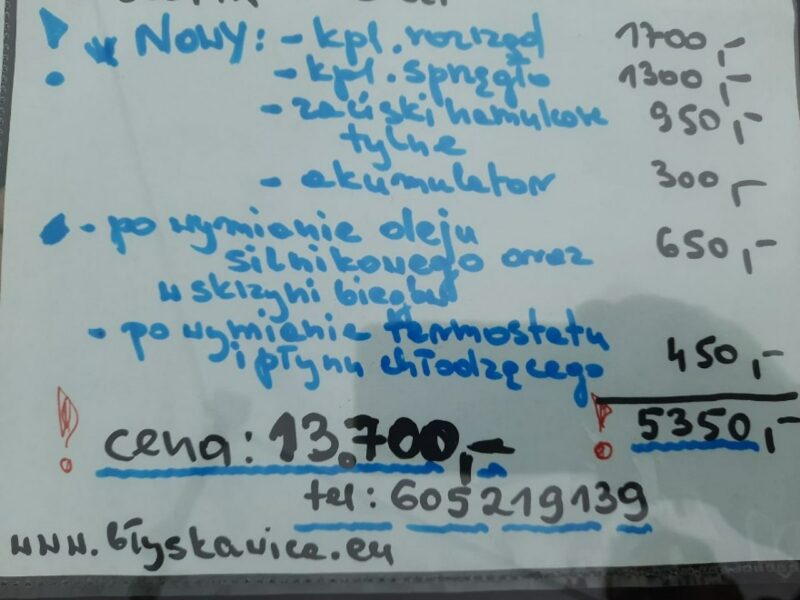 ! * NOWY: - kpl. rozrząd 1700,-
- kpl. sprzęgło 1300,-
- zaciski hamulcowe 950,-
tylne
- akumulator 300,-
- po wymianie oleju 650,-
silnikowego oraz
w skrzyni biegów
- po wymianie termostatu
i płynu chłodzącego 450,-
! cena: 13.700,- ! 5350,-
tel: 605219139
www.błyskavice.eu